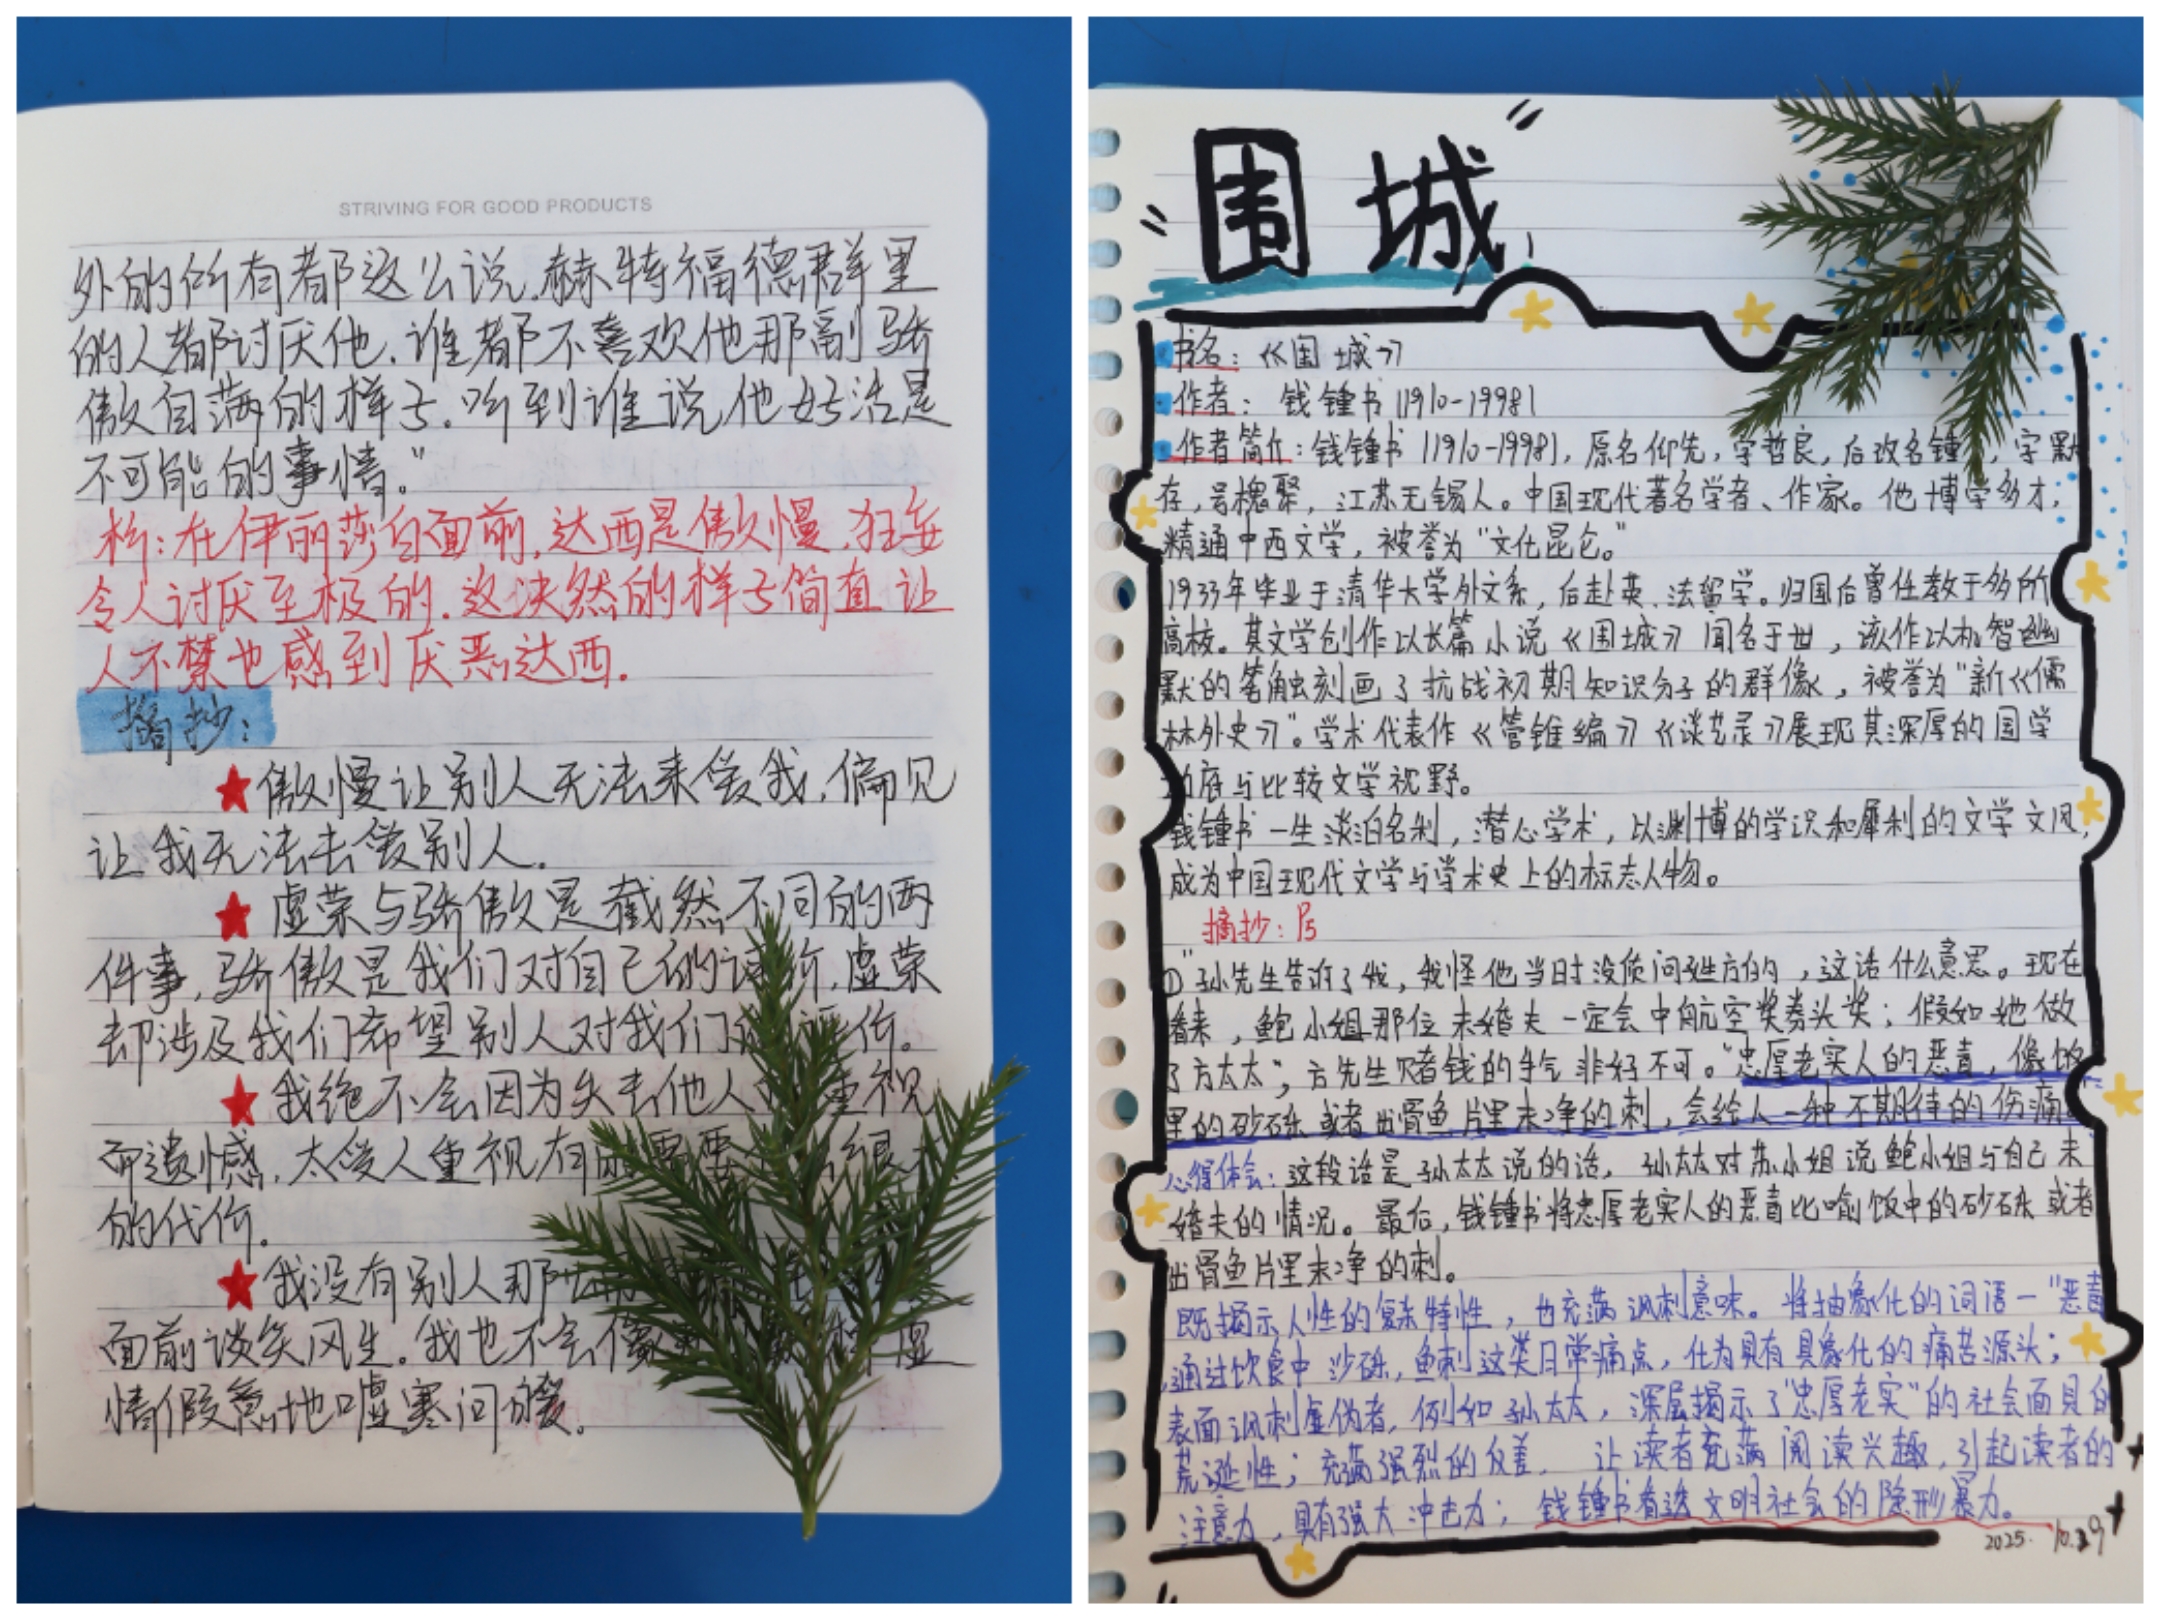 STRIVING FOR GOOD PRODUCTS
外的所有都这么说.赫特福德群里
的人都讨厌他.谁都不喜欢他那副骄
傲自满的样子.听到谁说他好活是
不可能的事情。”
析:在伊丽莎白面前,达西是傲慢.狂妄
令人讨厌至极的.这决然的样子简直让
人不禁也感到厌恶达西.
摘抄:
★傲慢让别人无法来爱我,偏见
让我无法去爱别人.
★虚荣与骄傲是截然不同的两
件事,骄傲是我们对自己的评价,虚荣
却涉及我们希望别人对我们 评价。
★我绝不会因为失去他人 重视
而遗憾,太受人重视有 需要
的代价.
★我没有别人那
面前谈笑风生。我也不会像 虚
情假意地嘘寒问暖。
“围城”
书名:《围城》
作者: 钱锺书(1910-1998)
作者简介:钱锺书(1910-1998),原名仰先,学哲良,后改名锺 ,字默
存,号槐聚,江苏无锡人。中国现代著名学者、作家。他博学多才,
精通中西文学,被誉为“文化昆仑。”
1933年毕业于清华大学外文系,后赴英.法留学。归国后曾任教于多所
高校。其文学创作以长篇小说《围城》闻名于世,该作以机智幽
默的笔触刻画了抗战初期知识分子的群像,被誉为“新《儒
林外史》”。学术代表作《管锥编》《谈艺录》展现其深厚的国学
功底与比较文学视野。
钱锺书一生淡泊名利,潜心学术,以渊博的学识和犀利的文学文风,
成为中国现代文学与学术史上的标志人物。
摘抄:P5
①“孙先生告诉了我,我怪他当时没质问姓方的,这话什么意思。现在
看来,鲍小姐那位未婚夫一定会中航空奖券头奖;假如她做
了方太太”,方先生赌钱的手气非好不可。“忠厚老实人的恶毒,像饭
里的砂砾或者出骨鱼片里未净的刺,会给人一种不期待的伤痛。
心得体会:这段话是孙太太说的话,孙太太对苏小姐说鲍小姐与自己未
婚夫的情况。最后,钱锺书将忠厚老实人的恶毒比喻饭中的砂砾或者
出骨鱼片里未净的刺。
既揭示人性的复杂特性,也充满讽刺意味。将抽象化的词语一“恶毒
通过饮食中沙砾,鱼刺这类日常痛点,化为具有具象化的痛苦源头;
表面讽刺虚伪者,例如孙太太,深层揭示了“忠厚老实”的社会面具的
荒诞性;充满强烈的反差. 让读者充满阅读兴趣,引起读者的
注意力,具有强大冲击力;钱锺书看透文明社会的隐形暴力。
2025.10.29